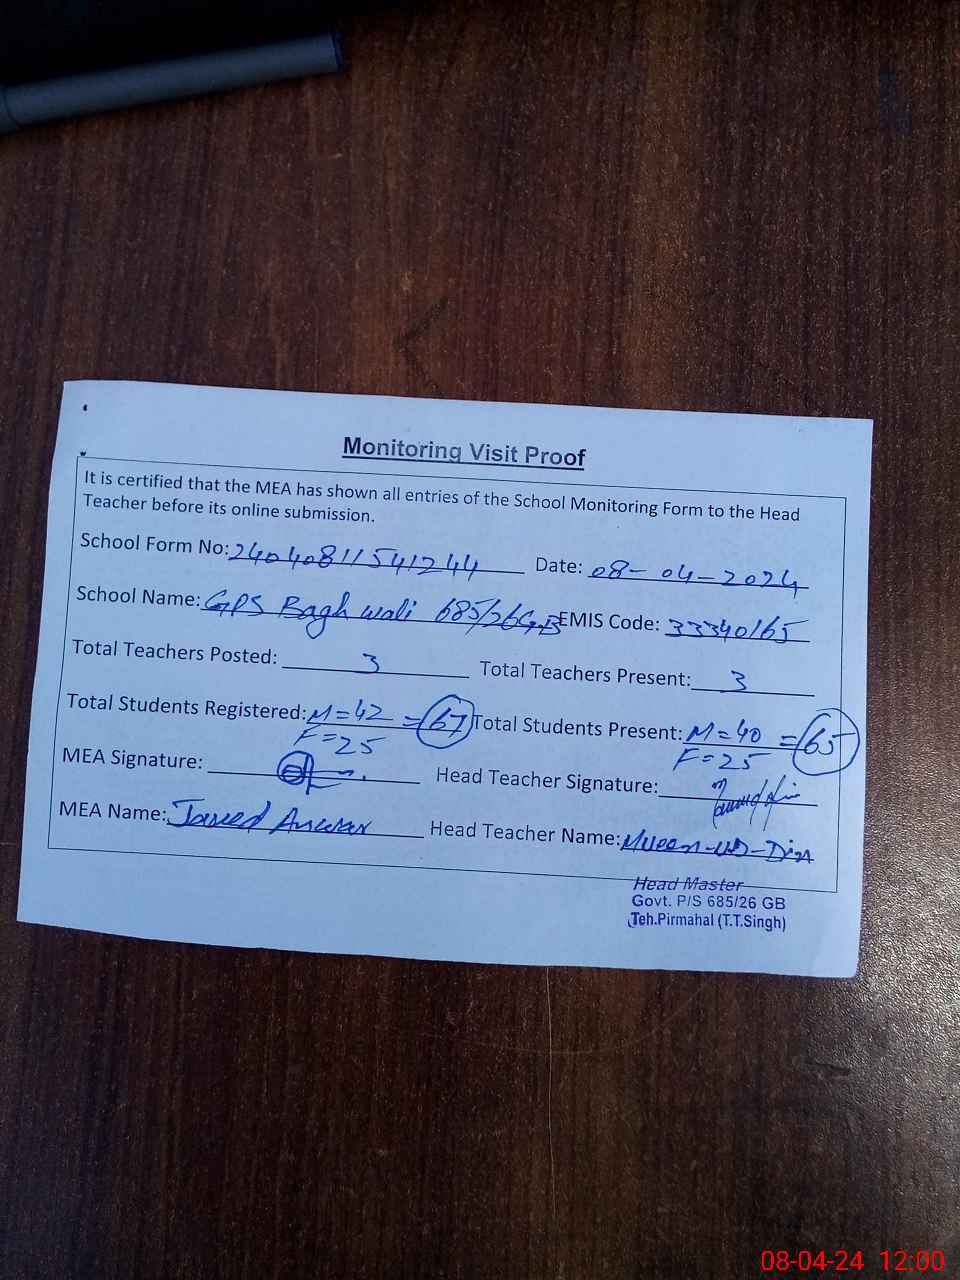 Monitoring Visit Proof
It is certified that the MEA has shown all entries of the School Monitoring Form to the Head
Teacher before its online submission.
School Form No: 24040811541244 Date: 08-04-2024
School Name: GPS Bagh wali 685/26GB EMIS Code: 33340165
Total Teachers Posted: 3 Total Teachers Present: 3
Total Students Registered: M=42 =67 Total Students Present: M=40 =65
F=25 F=25
MEA Signature: Head Teacher Signature:
MEA Name: Javed Anwar Head Teacher Name: Mueen-ud-Din
Head Master
Govt. P/S 685/26 GB
Teh.Pirmahal (T.T.Singh)
08-04-24 12:00